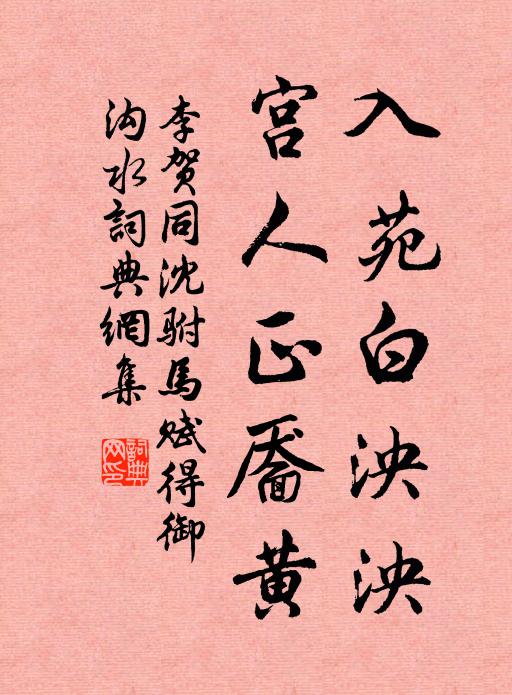 入苑白泱泱
宫人正靥黄
李贺同沈驸馬赋得御
沟水詞典網集
詞典网印